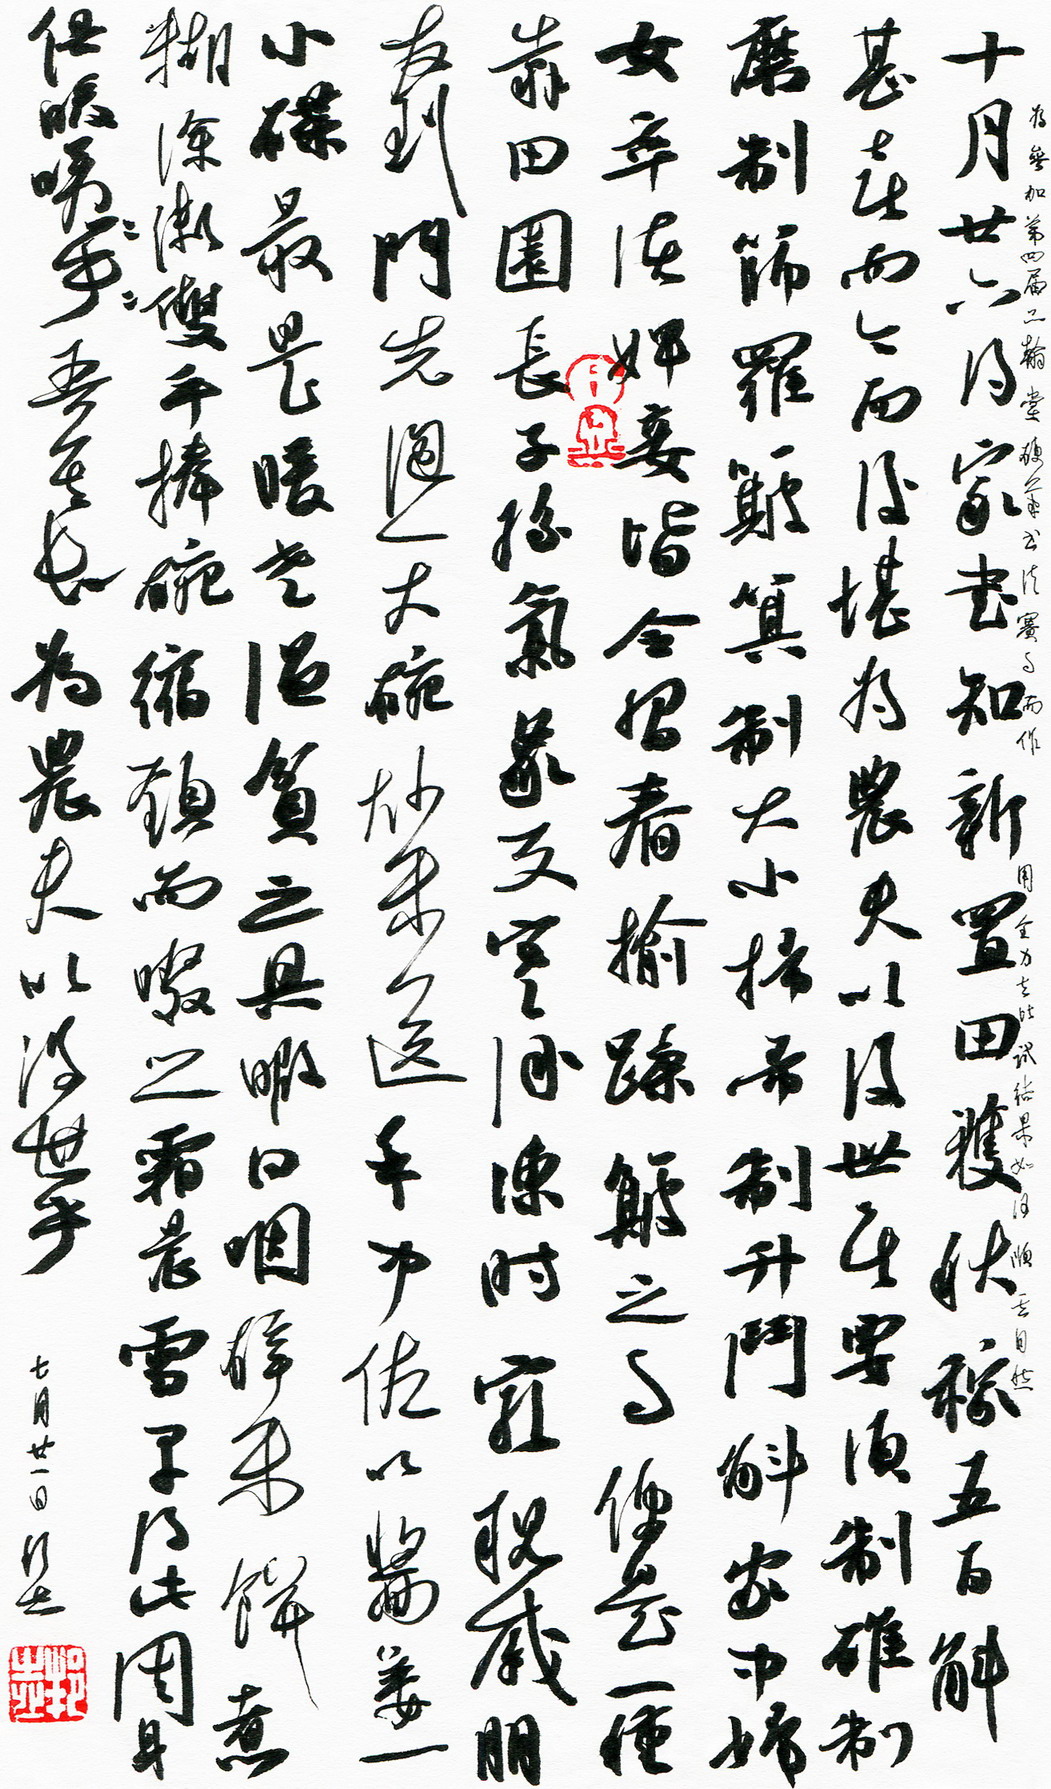 十月廿六得家书知新置田获秋稼五百斛
甚喜而今而后堪为农夫以没世矣要须制碓制
磨制筛罗簸箕制大小扫帚制升斗斛家中妇
女率诸婢妾皆令习舂揄蹂簸之事便是一种
靠田园长子孙气象天寒冰冻时穷亲戚朋
友到门先泡一大碗炒米送手中佐以酱姜一
小碟最是暖老温贫之具暇日咽碎米饼煮
糊涂粥双手捧碗缩颈而啜之霜晨雪早得此周身
俱暖嗟乎嗟乎吾其长为农夫以没世乎
七月廿一日
为参加第四届三翰堂硬笔书法赛事而作
用全力去比试结果如何顺其自然